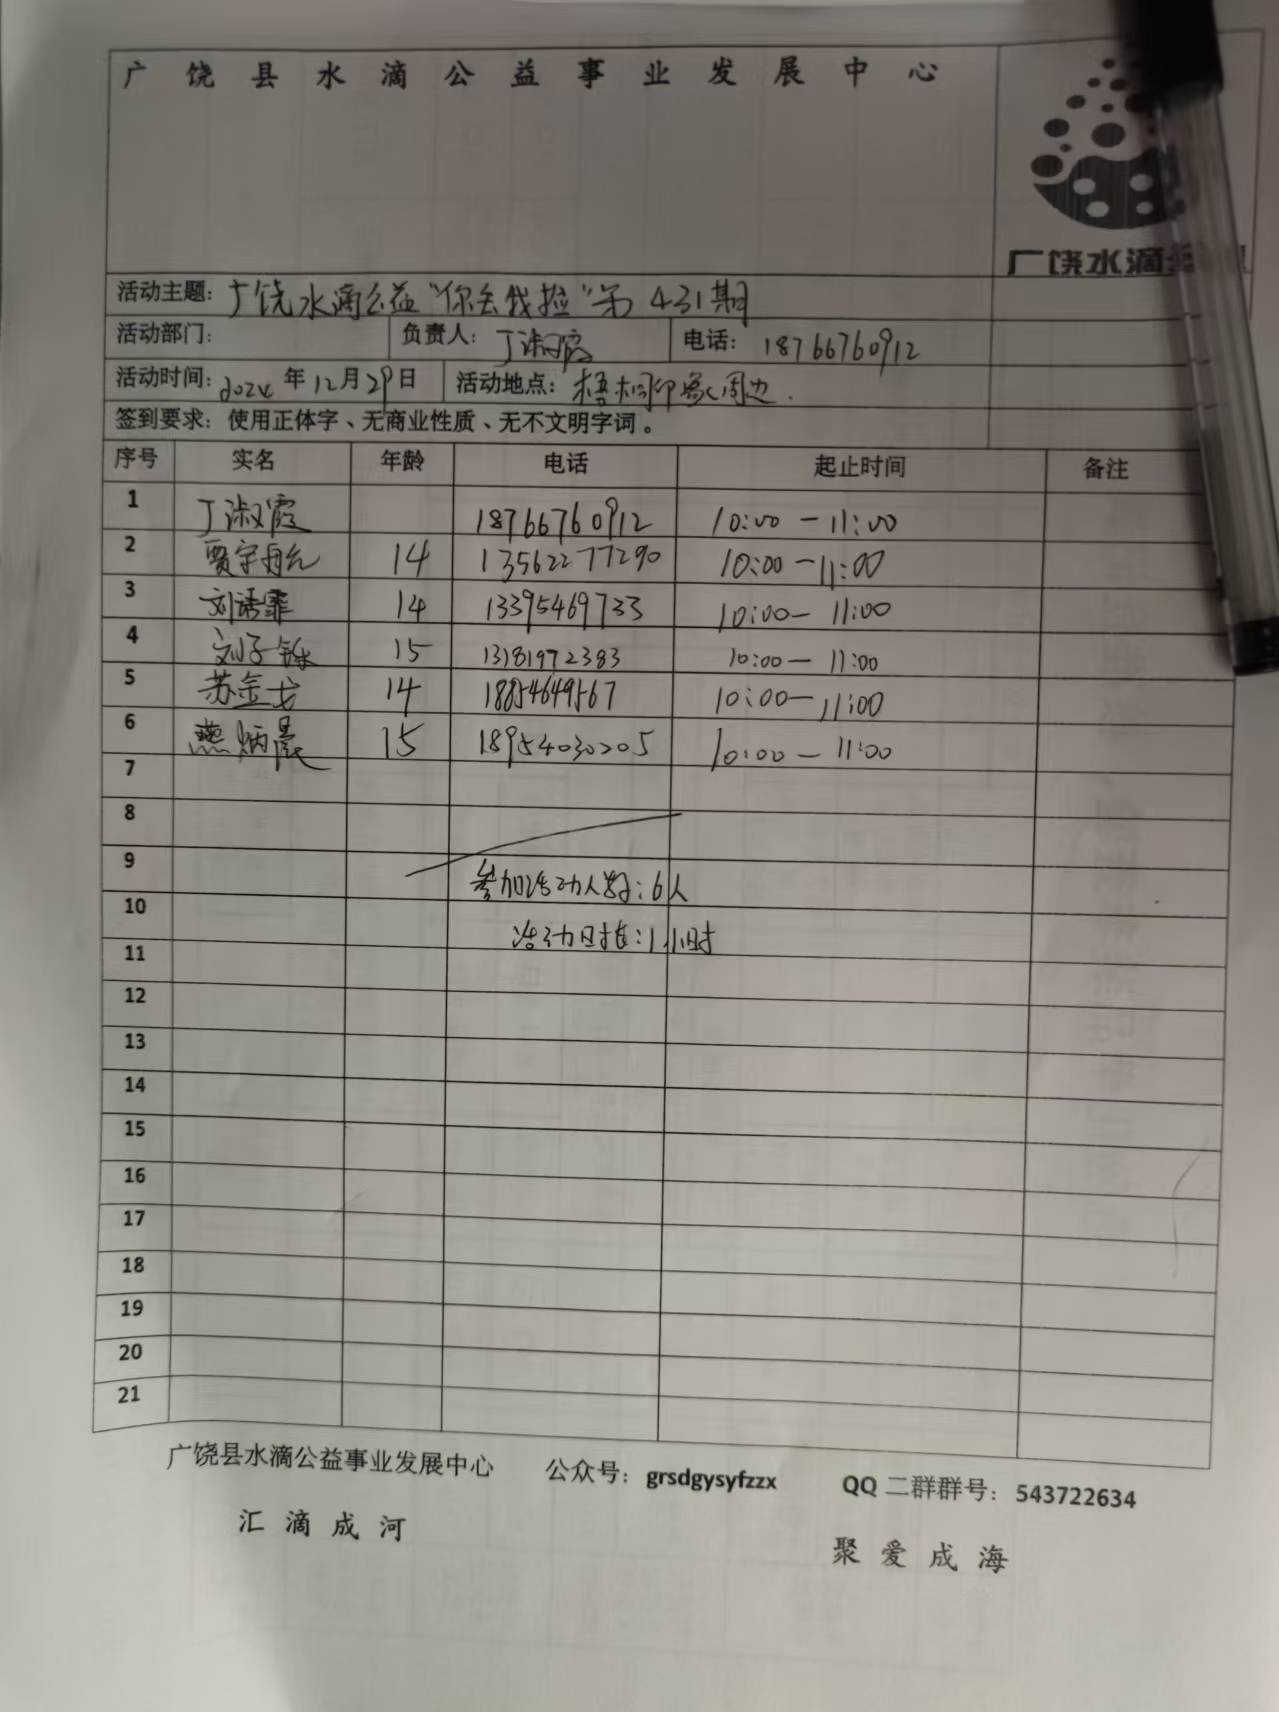 广饶县水滴公益事业发展中心
广饶水滴
活动主题：广饶水滴公益“你丢我捡”第431期
活动部门： 负责人：丁淑霞 电话：18766760912
活动时间：2024年12月29日 活动地点：梧桐印象周边.
签到要求：使用正体字、无商业性质、无不文明字词。
序号 实名 年龄 电话 起止时间 备注
1 丁淑霞 18766760912 10:00-11:00
2 贾宇 14 13562277290 10:00-11:00
3 刘语霏 14 13395469733 10:00-11:00
4 刘子铄 15 13181972383 10:00-11:00
5 苏金戈 14 18854649567 10:00-11:00
6 燕炳晨 15 18954030205 10:00-11:00
7
8
9 参加活动人数:6人
10 活动时长:1小时
11
12
13
14
15
16
17
18
19
20
21
广饶县水滴公益事业发展中心 公众号：grsdgysyfzzx QQ二群群号：543722634
汇滴成河 聚爱成海